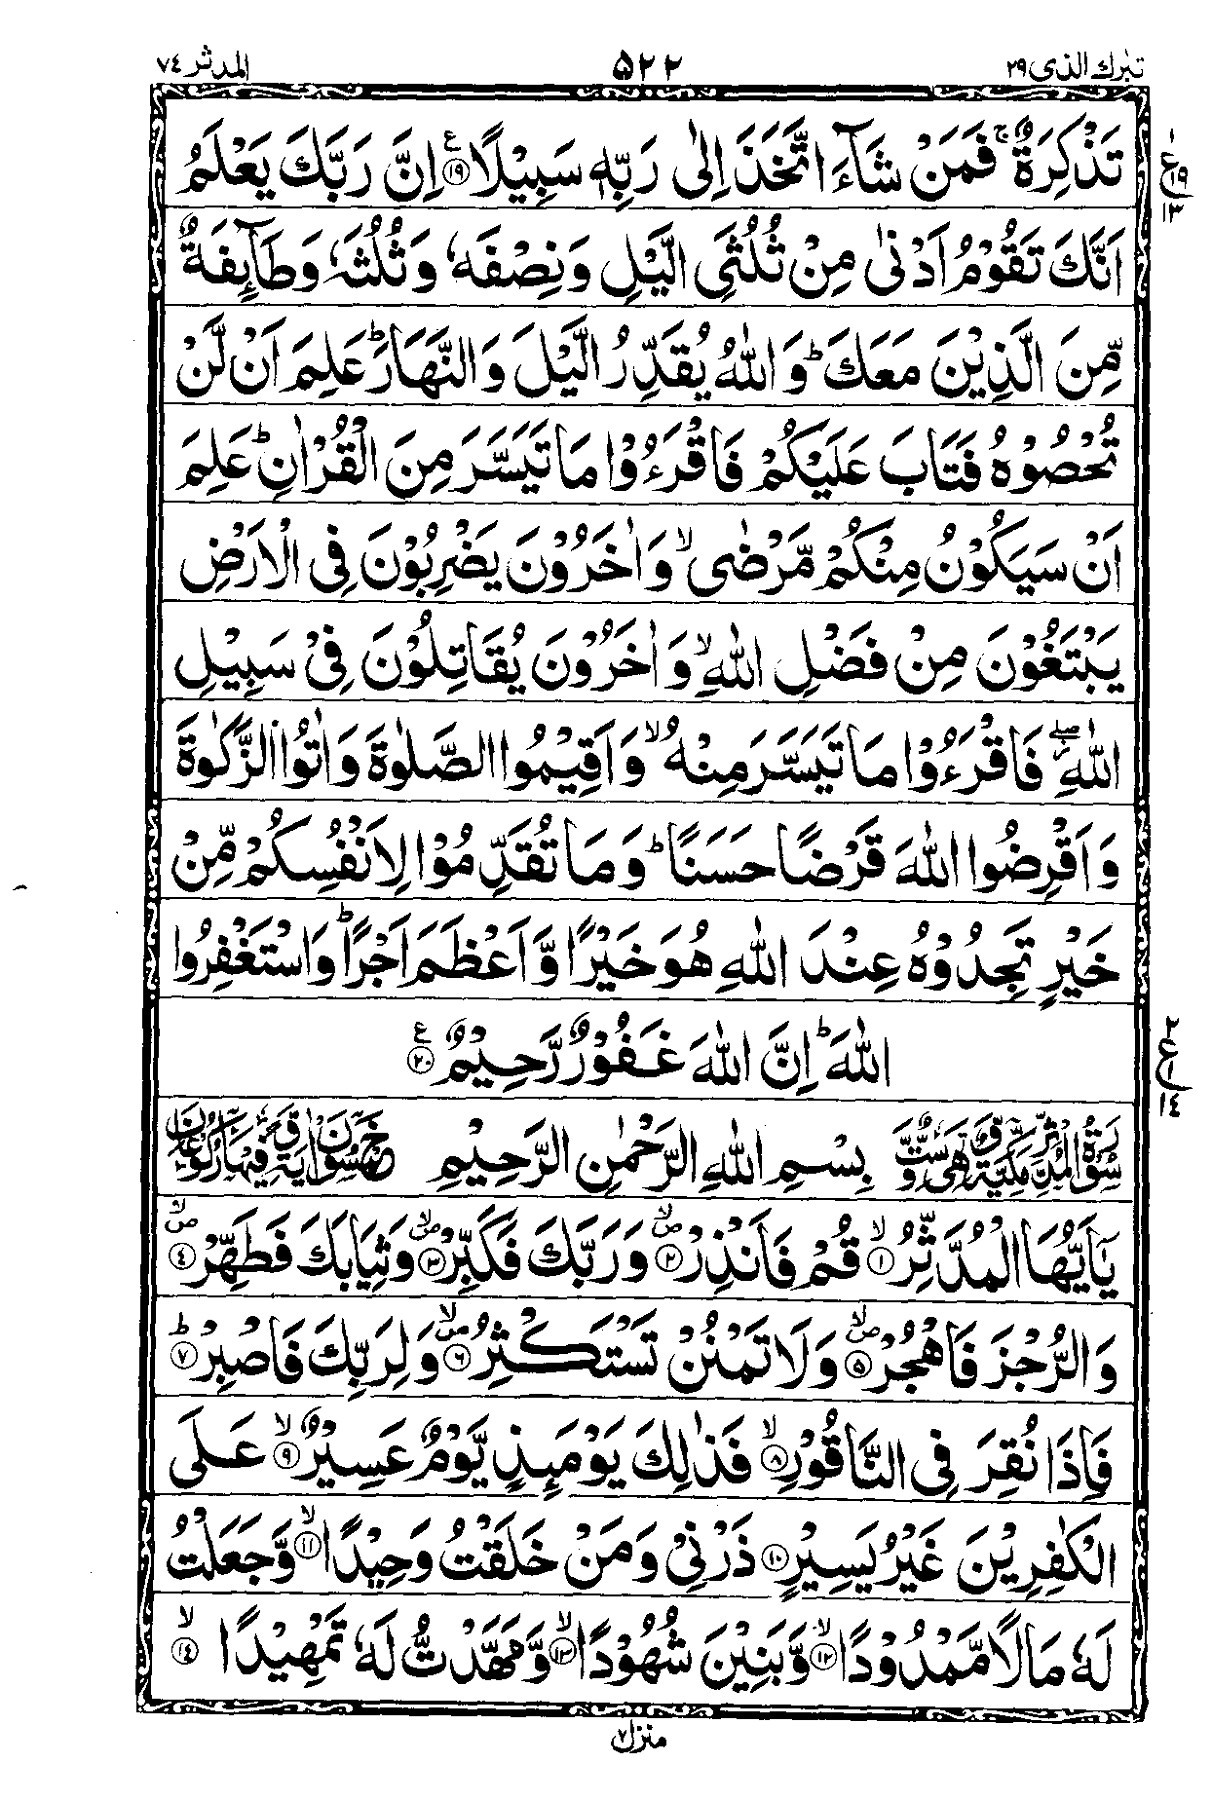 تبٰرك الذی ٢٩ ۵٢٢ المدثر ٧٤
تَذْكِرَةٌ ۚ فَمَنْ شَآءَ اتَّخَذَ اِلٰى رَبِّهٖ سَبِيْلًا ۧ﴿١٩﴾ اِنَّ رَبَّكَ يَعْلَمُ
اَنَّكَ تَقُوْمُ اَدْنٰى مِنْ ثُلُثَىِ الَّيْلِ وَنِصْفَهٗ وَثُلُثَهٗ وَطَآئِفَةٌ
مِّنَ الَّذِيْنَ مَعَكَ ؕ وَاللّٰهُ يُقَدِّرُ الَّيْلَ وَالنَّهَارَ ؕ عَلِمَ اَنْ لَّنْ
تُحْصُوْهُ فَتَابَ عَلَيْكُمْ فَاقْرَءُوْا مَا تَيَسَّرَ مِنَ الْقُرْاٰنِ ؕ عَلِمَ
اَنْ سَيَكُوْنُ مِنْكُمْ مَّرْضٰى ۙ وَاٰخَرُوْنَ يَضْرِبُوْنَ فِى الْاَرْضِ
يَبْتَغُوْنَ مِنْ فَضْلِ اللّٰهِ ۙ وَاٰخَرُوْنَ يُقَاتِلُوْنَ فِىْ سَبِيْلِ
اللّٰهِ ۖ فَاقْرَءُوْا مَا تَيَسَّرَ مِنْهُ ۙ وَاَقِيْمُوا الصَّلٰوةَ وَاٰتُوا الزَّكٰوةَ
وَاَقْرِضُوا اللّٰهَ قَرْضًا حَسَنًا ؕ وَمَا تُقَدِّمُوْا لِاَنْفُسِكُمْ مِّنْ
خَيْرٍ تَجِدُوْهُ عِنْدَ اللّٰهِ هُوَ خَيْرًا وَّاَعْظَمَ اَجْرًا ؕ وَاسْتَغْفِرُوا
اللّٰهَ ؕ اِنَّ اللّٰهَ غَفُوْرٌ رَّحِيْمٌ ۧ﴿٢٠﴾
سُوْرَةُ الْمُدَّثِّرِ مَكِّيَّةٌ وَّهِىَ سِتٌّ وَّ بِسْمِ اللّٰهِ الرَّحْمٰنِ الرَّحِيْمِ خَمْسُوْنَ اٰيَةً وَّفِيْهَا رُكُوْعَانِ
يٰۤاَيُّهَا الْمُدَّثِّرُ ۙ﴿١﴾ قُمْ فَاَنْذِرْ ۪ۙ﴿٢﴾ وَرَبَّكَ فَكَبِّرْ ۪ۙ﴿٣﴾ وَثِيَابَكَ فَطَهِّرْ ۪ۙ﴿٤﴾
وَالرُّجْزَ فَاهْجُرْ ۪ۙ﴿۵﴾ وَلَا تَمْنُنْ تَسْتَكْثِرُ ۪ۙ﴿٦﴾ وَلِرَبِّكَ فَاصْبِرْ ؕ﴿٧﴾
فَاِذَا نُقِرَ فِى النَّاقُوْرِ ۙ﴿٨﴾ فَذٰلِكَ يَوْمَئِذٍ يَّوْمٌ عَسِيْرٌ ۙ﴿٩﴾ عَلَى
الْكٰفِرِيْنَ غَيْرُ يَسِيْرٍ ﴿١٠﴾ ذَرْنِىْ وَمَنْ خَلَقْتُ وَحِيْدًا ۙ﴿١١﴾ وَّجَعَلْتُ
لَهٗ مَالًا مَّمْدُوْدًا ۙ﴿١٢﴾ وَّبَنِيْنَ شُهُوْدًا ۙ﴿١٣﴾ وَّمَهَّدْتُّ لَهٗ تَمْهِيْدًا ۙ﴿١٤﴾
منزل ٧